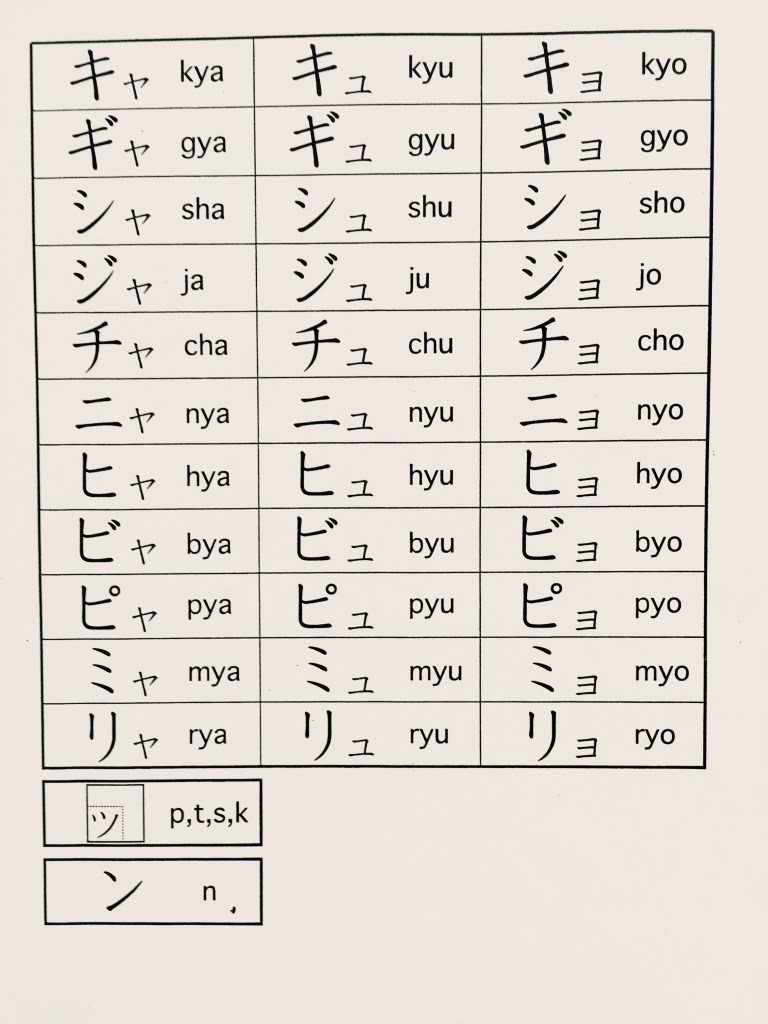 キャ kya キュ kyu キョ kyo
ギャ gya ギュ gyu ギョ gyo
シャ sha シュ shu ショ sho
ジャ ja ジュ ju ジョ jo
チャ cha チュ chu チョ cho
ニャ nya ニュ nyu ニョ nyo
ヒャ hya ヒュ hyu ヒョ hyo
ビャ bya ビュ byu ビョ byo
ピャ pya ピュ pyu ピョ pyo
ミャ mya ミュ myu ミョ myo
リャ rya リュ ryu リョ ryo
ッ p,t,s,k
ン n